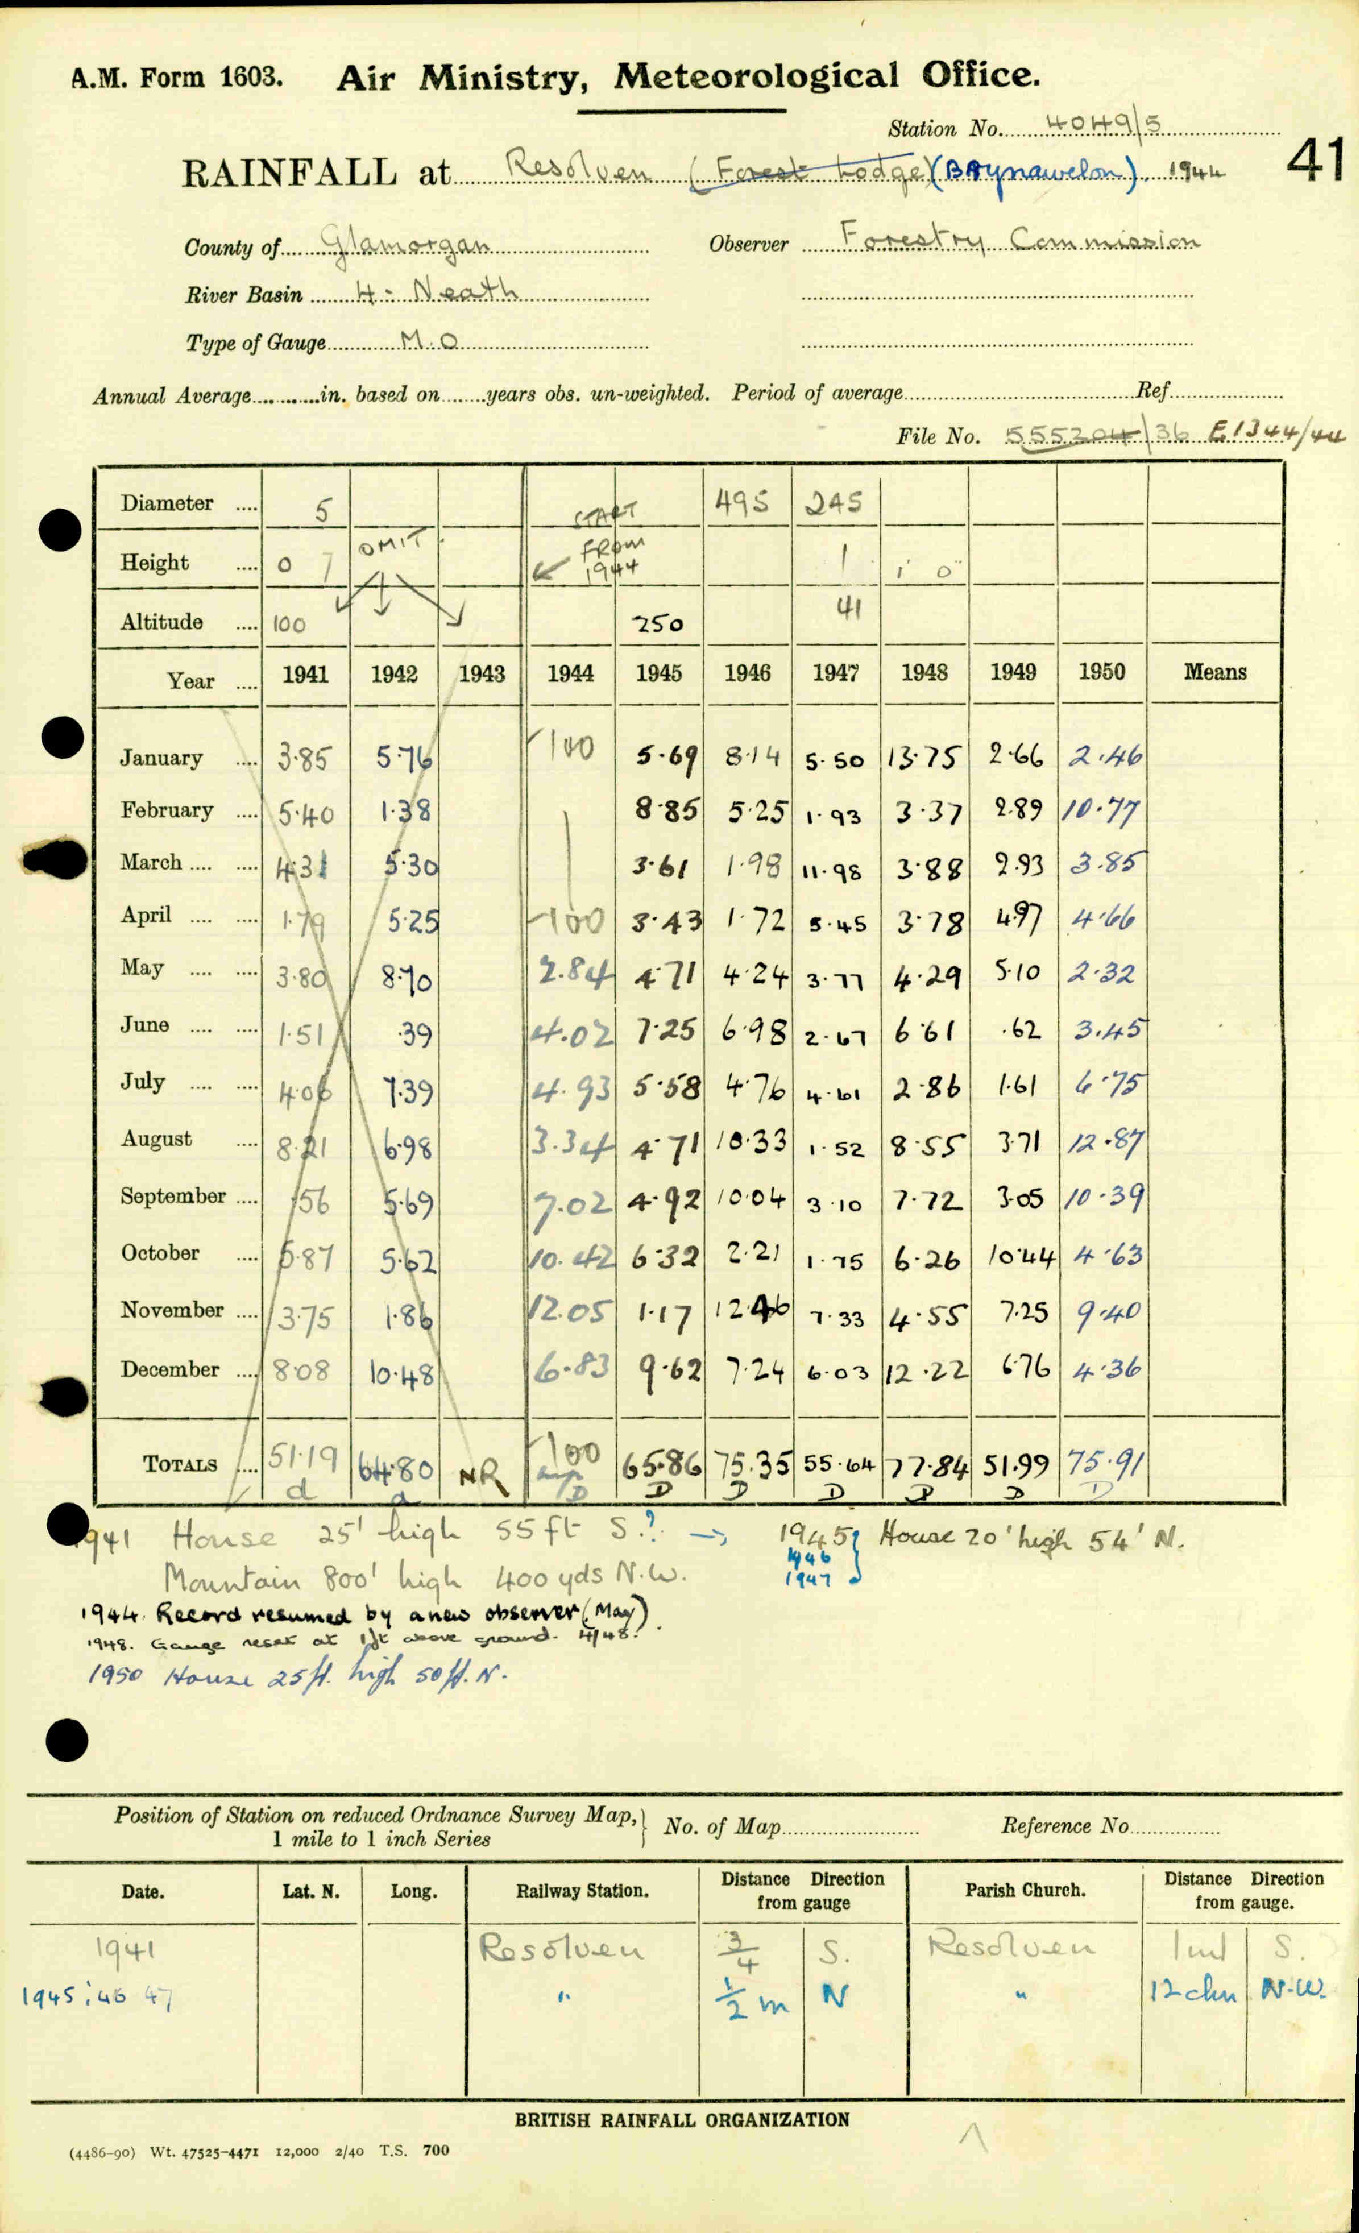 A.M. Form 1603. Air Ministry, Meteorological Office.
Station No. 4049/5
RAINFALL at Resolven (Forest Lodge) (Brynawelon) 1944
41
County of Glamorgan Observer Forestry Commission
River Basin 4 - Neath
Type of Gauge M.O
Annual Average in. based on years obs. un-weighted. Period of average Ref
File No. 555204/36 E1344/44
Diameter 5 495 245
START FROM 1944
OMIT
Height 0 7 1 1' 0"
Altitude 100 250 41
Year 1941 1942 1943 1944 1945 1946 1947 1948 1949 1950 Means
January 3.85 5.76 -100 5.69 8.14 5.50 13.75 2.66 2.46
February 5.40 1.38 8.85 5.25 1.93 3.37 2.89 10.77
March 4.31 5.30 3.61 1.98 11.98 3.88 2.93 3.85
April 1.79 5.25 -100 3.43 1.72 5.45 3.78 4.97 4.66
May 3.80 8.70 2.84 4.71 4.24 3.77 4.29 5.10 2.32
June 1.51 .39 4.02 7.25 6.98 2.67 6.61 .62 3.45
July 4.06 7.39 4.93 5.58 4.76 4.61 2.86 1.61 6.75
August 8.21 6.98 3.34 4.71 10.33 1.52 8.55 3.71 12.87
September .56 5.69 7.02 4.92 10.04 3.10 7.72 3.05 10.39
October 5.87 5.62 10.42 6.32 2.21 1.75 6.26 10.44 4.63
November 3.75 1.86 12.05 1.17 12.46 7.33 4.55 7.25 9.40
December 8.08 10.48 6.83 9.62 7.24 6.03 12.22 6.76 4.36
TOTALS 51.19 64.80 NR -100 65.86 75.35 55.64 77.84 51.99 75.91
d a D D D D D D D
1941 House 25' high 55 ft S.? → 1945 House 20' high 54' N.
1946
1947
Mountain 800' high 400 yds N.W.
1944. Record resumed by a new observer (May)
1948. Gauge reset at 1ft above ground. 4/48.
1950 House 25 ft. high 50 ft. N.
Position of Station on reduced Ordnance Survey Map, No. of Map Reference No
1 mile to 1 inch Series
Date. Lat. N. Long. Railway Station. Distance Direction from gauge Parish Church. Distance Direction from gauge.
1941 Resolven 3/4 S. Resolven 1 ml S.
1945 : 46 47 " 1/2 m N " 12 chn N.W.
BRITISH RAINFALL ORGANIZATION
(4486-90) Wt. 47525-4471 12,000 2/40 T.S. 700